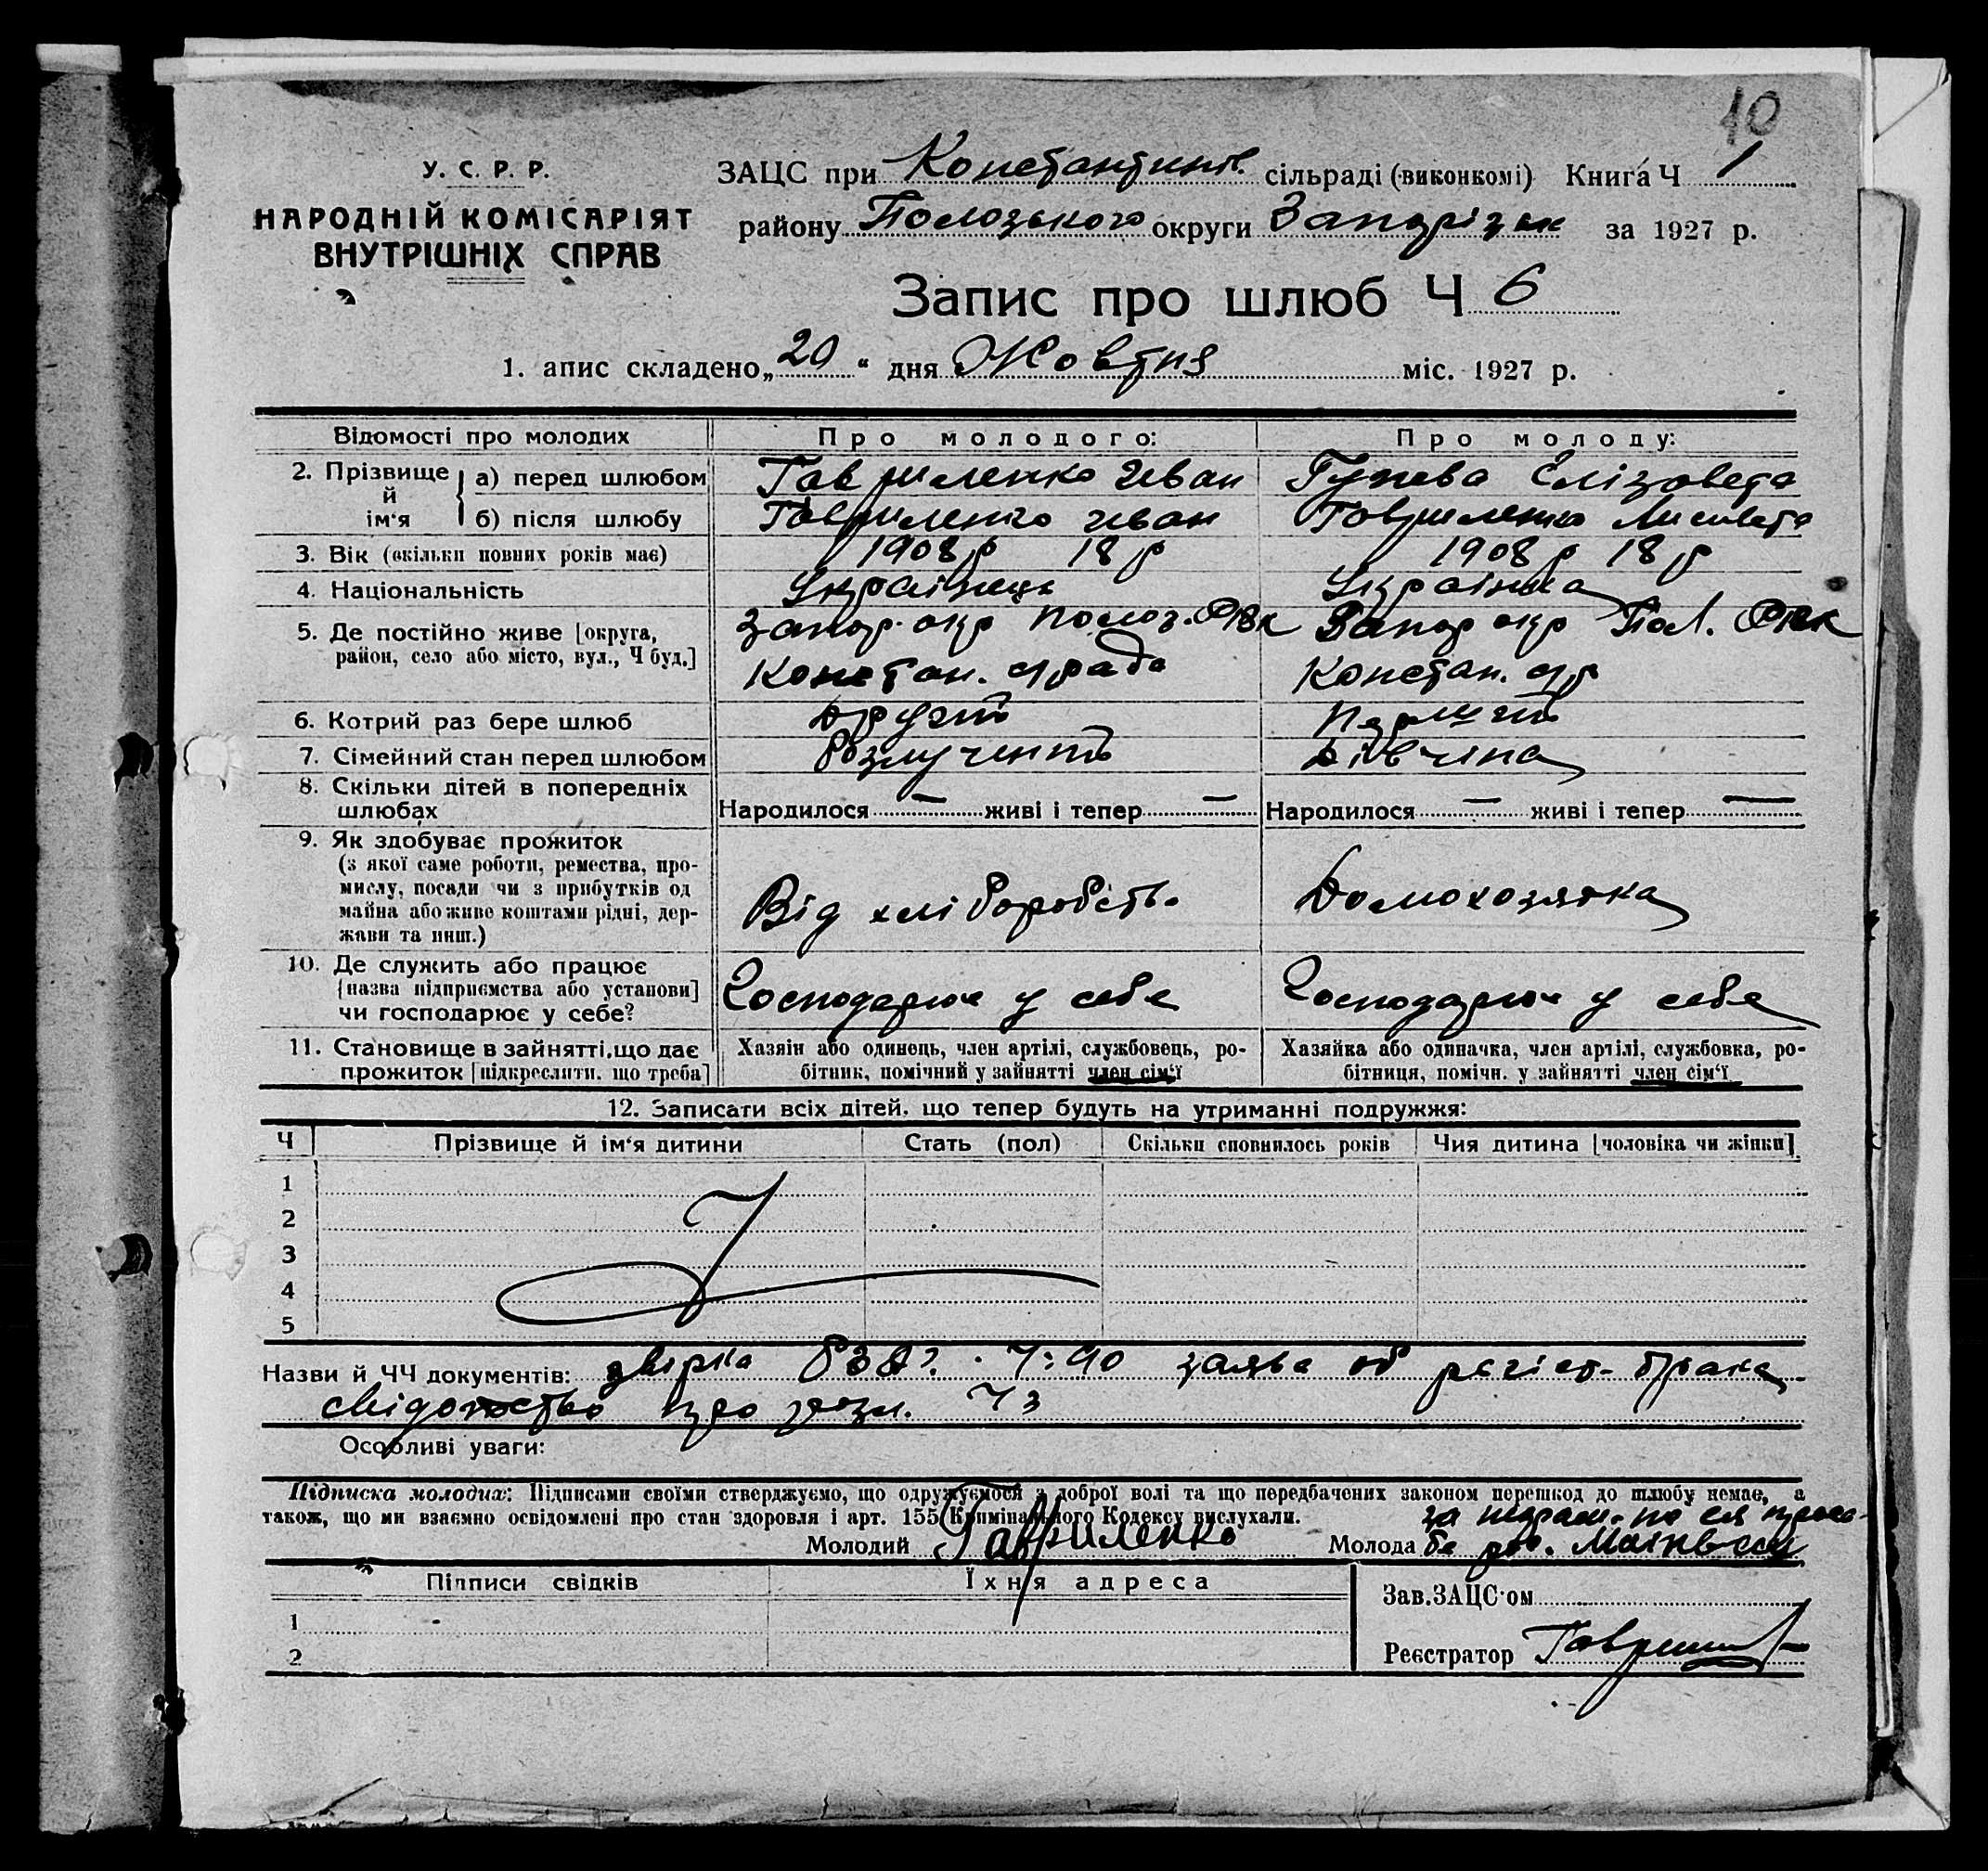 10
У. С. Р. Р.
НАРОДНІЙ КОМІСАРІЯТ
ВНУТРІШНІХ СПРАВ
ЗАЦС при Константинів. сільраді (виконкомі) Книга Ч 1
району Пологського округи Запорізьк за 1927 р.
Запис про шлюб Ч 6
1. апис складено „20“ дня Жовтня міс. 1927 р.
Відомості про молодих Про молодого: Про молоду:
2. Прізвище й ім‘я
а) перед шлюбом Гавриленко Иван Елізавета
б) після шлюбу Гавриленко Иван Гавриленко Лисавета
3. Вік (скільки повних років має) 1908 р 18 р 1908 р 18 р
4. Національність Українець Українка
5. Де постійно живе [округа, Запор. окр Полог. РВК Запор окр Пол. РВК
район, село або місто, вул., Ч буд.] Констан. с/рада Констан. с/р
6. Котрий раз бере шлюб другий перший
7. Сімейний стан перед шлюбом Розлучений дівчина
8. Скільки дітей в попередніх
шлюбах Народилося — живі і тепер — Народилося — живі і тепер —
9. Як здобуває прожиток
(з якої саме роботи, ремества, про-
мислу, посади чи з прибутків од
майна або живе коштами рідні, дер-
жави та инш.)
Від хліборобств. Домохозяйка
10. Де служить або працює
[назва підприємства або установи]
чи господарює у себе?
Господарює у себе Господарює у себе
11. Становище в зайнятті, що дає
прожиток [підкреслити, що треба]
Хазяїн або одинець, член артілі, службовець, ро-
бітник, помічний у зайнятті член сім‘ї
Хазяйка або одиначка, член артілі, службовка, ро-
бітниця, помічн. у зайнятті член сім‘ї
12. Записати всіх дітей, що тепер будуть на утриманні подружжя:
Ч Прізвище й ім‘я дитини Стать (пол) Скільки сповнилось років Чия дитина [чоловіка чи жінки]
1
2
3
4
5
Назви й ЧЧ документів: Ч: 90 заява об регіст. брака
свідотство про розл. Ч 3
Особливі уваги:
Підписка молодих: Підписами своїми стверджуємо, що одружуємося з доброї волі та що передбачених законом перешкод до шлюбу немає, а
також, що ми взаємно освідомлені про стан здоровля і арт. 155 Кримінального Кодексу вислухали.
за неграм. по ея прось-
Молодий Гавриленко Молода бе
Підписи свідків Їхня адреса
1
2
Зав. ЗАЦС‘ом
Реєстратор